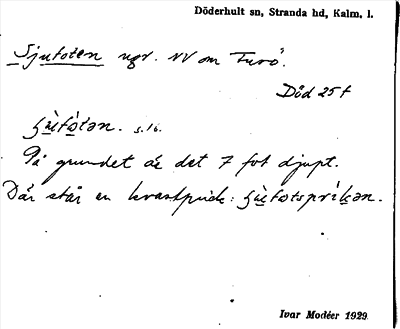 Döderhult sn, Stranda hd, Kalm. l.
Sjufoten ugr. NV om Furö.
Död 25 f
s. 16.
På grundet är det 7 fot djupt.
Där står en kvastprick:
Ivar Modéer 1929